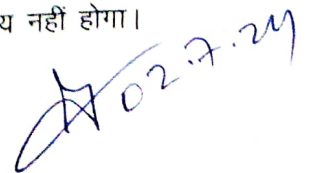 य नहीं होगा।
02.7.24